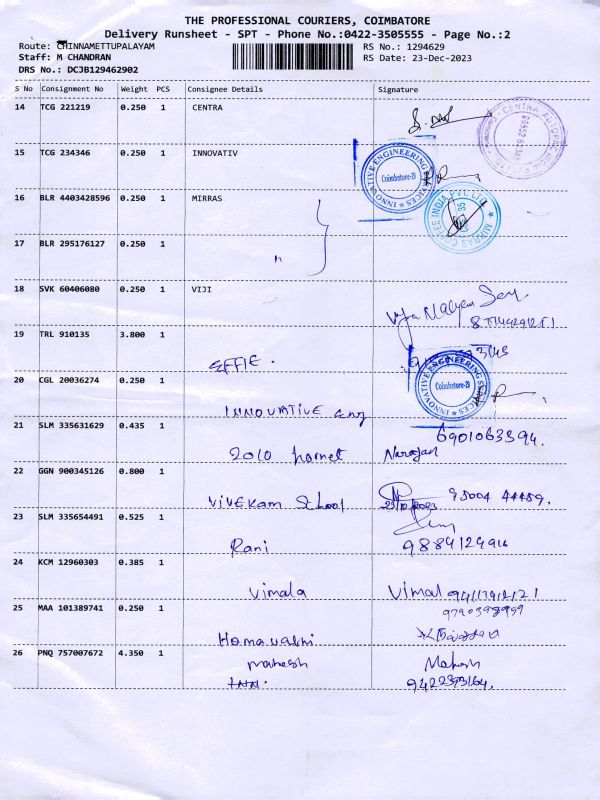 THE PROFESSIONAL COURIERS, COIMBATORE
Delivery Runsheet - SPT - Phone No.:0422-3505555 - Page No.:2
Route: CHINNAMETTUPALAYAM
RS No.: 1294629
Staff: M CHANDRAN
RS Date: 23-Dec-2023
DRS No.: DCJB129462902
S No Consignment No Weight PCS Consignee Details Signature
14 TCG 221219 0.250 1 CENTRA
15 TCG 234346 0.250 1 INNOVATIV
INNOVATIVE ENGINEERING SERVICES
Coimbatore-21
16 BLR 4403428596 0.250 1 MIRRAS
MIRRAS COFEE INDIA PVT LTD
17 BLR 295176127 0.250 1
18 SVK 60406080 0.250 1 VIJI
19 TRL 910135 3.800 1
EFFIE.
20 CGL 20036274 0.250 1
INNOVATIVE ENGINEERING SERVICES
Coimbatore-21
INNOVATIVE eng
21 SLM 335631629 0.435 1
6901063394.
2010 hornet Narayan
22 GGN 900345126 0.800 1
VIVEKam School 23/12/2023 95004 44489.
23 SLM 335654491 0.525 1
Rani 9884124914
24 KCM 12960303 0.385 1
Vimala Vimal
25 MAA 101389741 0.250 1
26 PNQ 757007672 4.350 1
Mahesh Mahesh
9422393164.